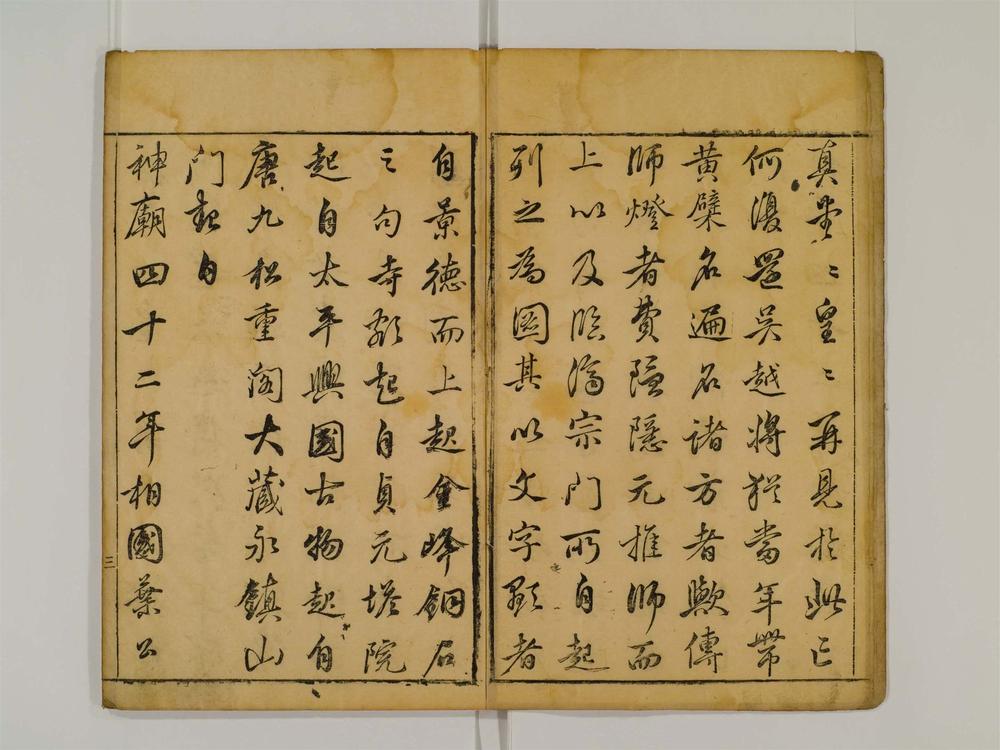 真堂〻皇〻再見於此已
何復還吳越將猶當年帶
黃檗名遍名諸方者歟傳
師燈者費隱隱元推師而
上以及臨濟宗門所自起
列之為圖其以文字顯者
自景德而上起金峰銅石
之句寺額起自貞元塔院
起自太平興國古物起自
唐九松重閣大藏永鎮山
門起自
神廟四十二年相國葉公
三